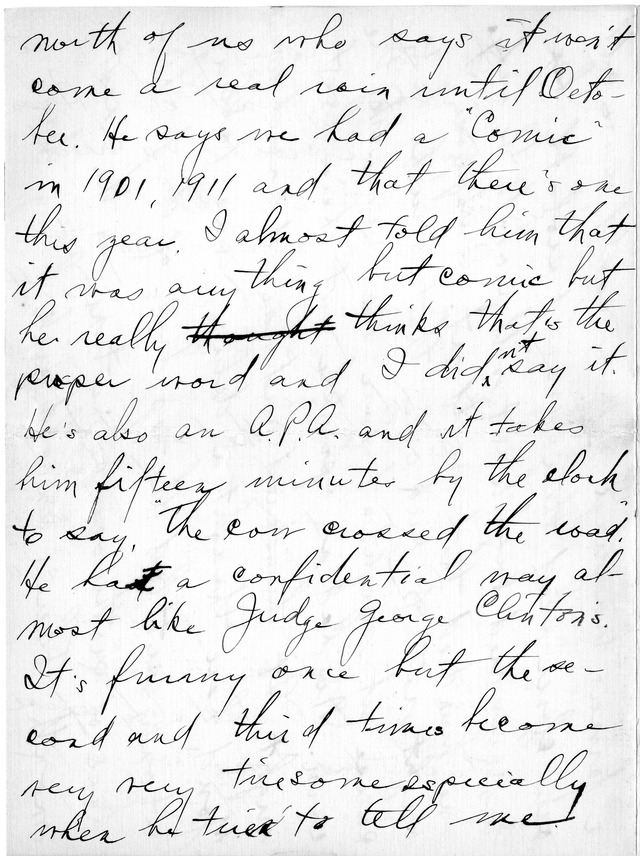 north of us who says it won't
come a real rain until Octo-
ber. He says we had a "Comic"
in 1901, 1911 and that there's one
this year. I almost told him that
it was anything but comic but
he really thought thinks that's the
proper word and I didn't say it.
He's also an A.P.A. and it takes
him fifteen minutes by the clock
to say, "The cow crossed the road".
He has a confidential way al-
most like Judge George Clinton's.
It's funny once but the se-
cond and third times become
very very tiresome especially
when he tries to tell me